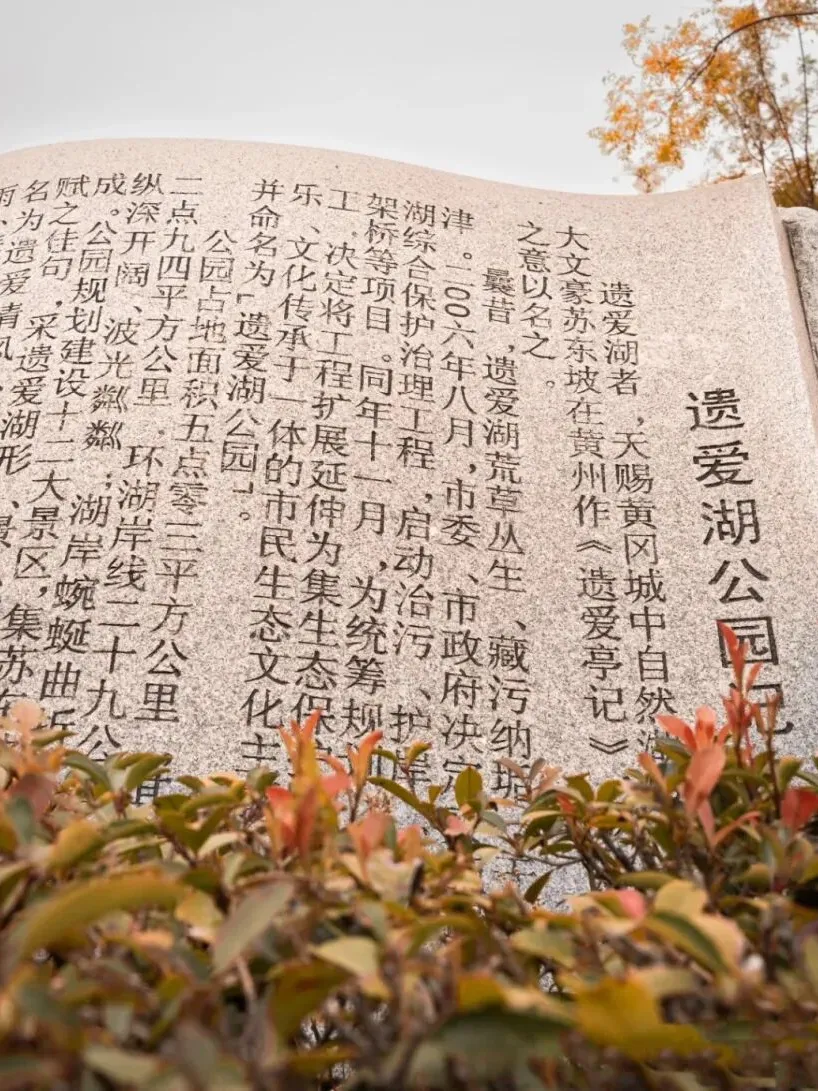 遗爱湖公园记
遗爱湖者，天赐黄冈城中自然湖
大文豪苏东坡在黄州作《遗爱亭记》
之意以名之。
曩昔，遗爱湖荒草丛生、藏污纳垢
津。二00六年八月，市委、市政府决定
湖综合保护治理工程，启动治污、护岸
架桥等项目。同年十一月，为统筹规划
工。决定将工程扩展延伸为集生态保护
乐、文化传承于一体的市民生态文化主
并命名为「遗爱湖公园」。
公园占地面积五点零三平方公里
二点九四平方公里。环湖岸线二十九公
纵深开阔、波光粼粼；湖岸蜿蜒曲折
成。公园规划建设十二大景区，集苏东
赋之佳句，采遗爱湖形、景
名为遗爱清风、
雨、